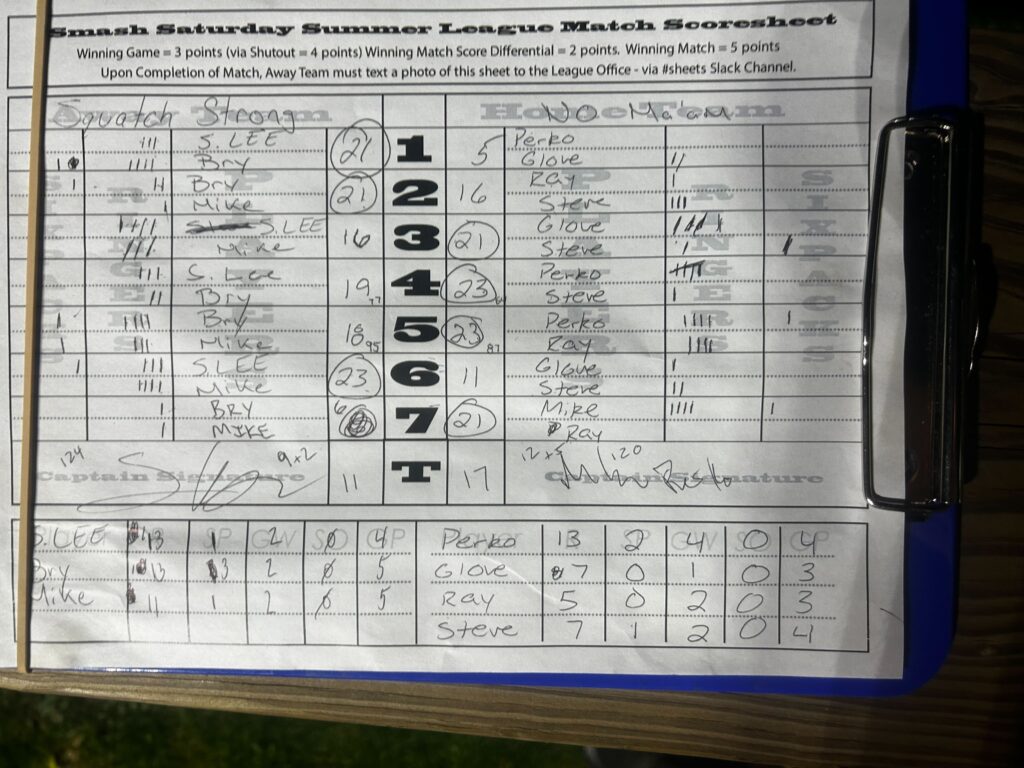 Smash Saturday Summer League Match Scoresheet
Winning Game = 3 points (via Shutout = 4 points) Winning Match Score Differential = 2 points. Winning Match = 5 points
Upon Completion of Match, Away Team must text a photo of this sheet to the League Office - via #sheets Slack Channel.
Squatch Strong No Ma'am
S. LEE 21 1 5 Perko
Bry Glove
Bry 21 2 16 Ray
Mike Steve
S. LEE 16 3 21 Glove
Mike Steve
S. Lee 19 4 23 Perko
Bry Steve
Bry 18 95 5 23 87 Perko
Mike Ray
S. LEE 23 6 11 Glove
Mike Steve
BRY 6 7 21 Mike
MIKE Ray
124 9x2 11 T 17 12x5 120
Captain Signature Captain Signature
S. LEE 13 1 2 0 4 Perko 13 2 4 0 4
Bry 13 3 2 0 5 Glove 7 0 1 0 3
Mike 11 1 2 0 5 Ray 5 0 2 0 3
Steve 7 1 2 0 4